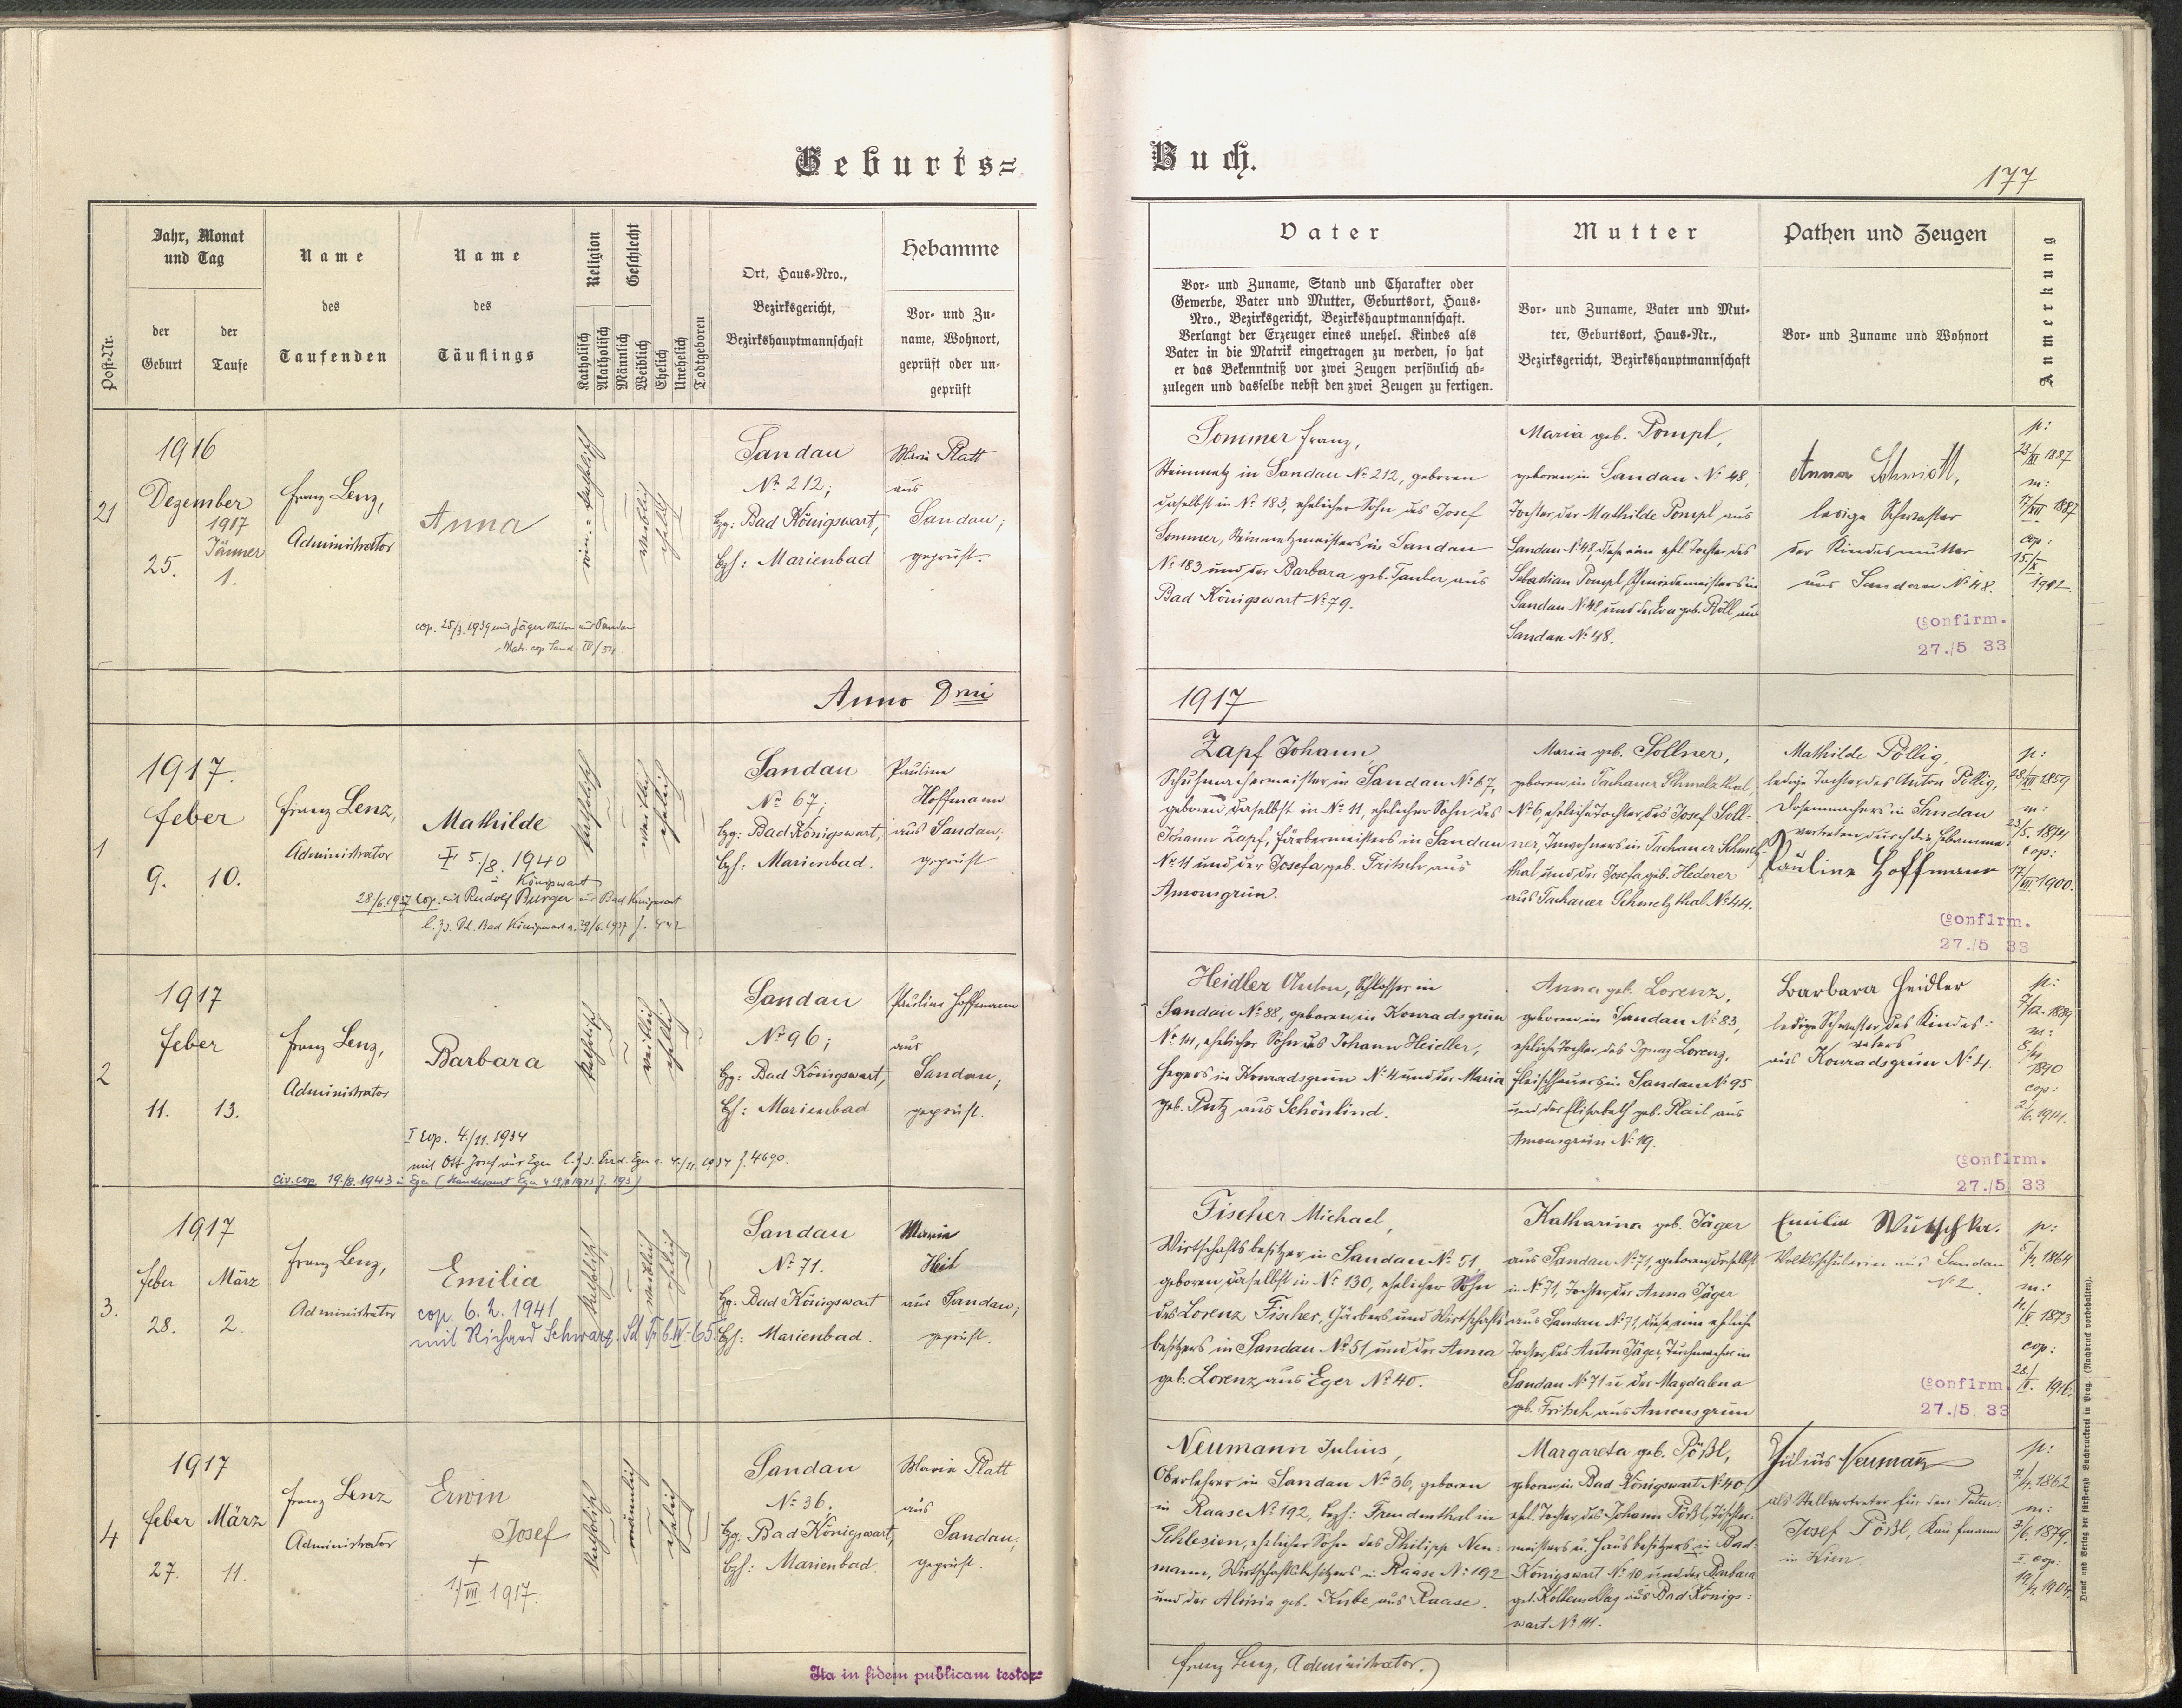 Geburts=
Buch.
177
Post-Nr.
Jahr, Monat
und Tag
der
Geburt
der
Taufe
Name
des
Taufenden
Name
des
Täuflings
Religion
Katholisch
Akatholisch
Geschlecht
Männlich
Weiblich
Ehelich
Unehelich
Todtgeboren
Ort, Haus-Nro.,
Bezirksgericht,
Bezirkshauptmannschaft
Hebamme
Vor- und Zu-
name, Wohnort,
geprüft oder un-
geprüft
Vater
Vor- und Zuname, Stand und Charakter oder
Gewerbe, Vater und Mutter, Geburtsort, Haus-
Nro., Bezirksgericht, Bezirkshauptmannschaft.
Verlangt der Erzeuger eines unehel. Kindes als
Vater in die Matrik eingetragen zu werden, so hat
er das Bekenntniß vor zwei Zeugen persönlich ab-
zulegen und dasselbe nebst den zwei Zeugen zu fertigen.
Mutter
Vor- und Zuname, Vater und Mut-
ter, Geburtsort, Haus-Nr.,
Bezirksgericht, Bezirkshauptmannschaft
Pathen und Zeugen
Vor- und Zuname und Wohnort
Anmerkung
21
1916
Dezember
25.
1917
Jänner
1.
Franz Lenz,
Administrator
Anna
cop. 25/3. 1939 mit Jäger aus Sandau
Matr. cop. Sand. IV/54.
katholisch
weiblich
ehelich
Sandau
No 212;
Bzg: Bad Königswart,
Bzh: Marienbad
Maria Platt
aus
Sandau;
geprüft.
Sommer Franz,
Steinmetz in Sandau No 212, geboren
daselbst in No 183, ehelicher Sohn des Josef
Sommer, Steinmetzmeisters in Sandau
No 183 und der Barbara geb. Tauber aus
Bad Königswart No 79.
Maria geb. Pompl,
geboren in Sandau No 48,
Tochter der Mathilde Pompl aus
Sandau No 48, diese eine ehel. Tochter des
Sebastian Pompl, Schmiedemeisters in
Sandau No 48, und der Eva geb. Röll aus
Sandau No 48.
Anna Schmidt,
ledige Schwester
der Kindesmutter
aus Sandau No 48.
Confirm.
27./5 33
p:
23/XI 1887
m:
17/XII 1887
cop:
15/X
1912
Anno Dni
1917
1
1917.
Feber
9. 10.
Franz Lenz,
Administrator
Mathilde
5./8. 1940
Königswart
28/6. 1937 Cop. mit Rudolf Burger aus Bad Königswart
katholisch
weiblich
ehelich
Sandau
No 67;
Bzg: Bad Königswart,
Bzh: Marienbad.
Pauline
Hoffmann
aus Sandau;
geprüft
Zapf Johann,
Schuhmachermeister in Sandau No 67,
geboren daselbst in No 11, ehelicher Sohn des
Johann Zapf, Färbermeisters in Sandau
No 11 und der Josefa geb. Fritsch aus
Amonsgrün.
Maria geb. Sollner,
geboren in Tachauer Schmelzthal
No 6, eheliche Tochter des Josef Soll-
ner, Inwohners in Tachauer Schmelz-
thal und der Josefa geb. Hederer
aus Tachauer Schmelzthal No 44.
Mathilde Pöllig,
ledige Tochter des Anton Pöllig,
Dosenmachers in Sandau
vertreten durch die Hebamme:
Pauline Hoffmann
Confirm.
27./5 33
p:
m:
23/5. 1874
cop:
17/VII 1900.
2
1917
Feber
11. 13.
Franz Lenz,
Administrator
Barbara
I Cop. 4./11. 1934
mit Ott Josef aus Eger
civ. cop 19./8. 1943 in Eger
katholisch
weiblich
ehelich
Sandau
No 96;
Bg: Bad Königswart,
Bh: Marienbad
Pauline Hoffmann
aus
Sandau;
geprüft.
Heidler Anton, Schlosser in
Sandau No 88, geboren in Konradsgrün
ehelicher Sohn des Johann Heidler,
Hegers in Konradsgrün No 4 und der Maria
geb. Putz aus Schönlind.
Anna geb. Lorenz,
geboren in Sandau No 83,
eheliche Tochter des Ignaz Lorenz,
Fleischhauers in Sandau No 95
und der Elisabeth geb. Plail aus
Amonsgrün No 19.
Barbara Heidler
ledige Schwester des Kindes-
vaters
aus Konradsgrün No 4.
Confirm.
27./5 33
p:
7/12. 1889
m:
8/11
1890
cop:
2/6. 1914.
3.
1917
Feber März
28. 2.
Franz Lenz,
Administrator
Emilia
cop. 6. 2. 1941
mit Richard Schwarz.
katholisch
weiblich
ehelich
Sandau
No 71.
Bg: Bad Königswart
Bh: Marienbad.
Maria
Heil
aus Sandau;
geprüft.
Fischer Michael,
Wirtschaftsbesitzer in Sandau No 51,
geboren daselbst in No 130, ehelicher Sohn
des Lorenz Fischer, Färbers und Wirtschafts-
besitzers in Sandau No 51 und der Anna
geb. Lorenz aus Eger No 40.
Katharina geb. Jäger
aus Sandau No 71, geboren daselbst
in No 71, Tochter der Anna Jäger
aus Sandau No 71, diese eine eheliche
Tochter des Anton Jäger, Tuchmacher in
Sandau No 71 u. der Magdalena
geb. Fritsch aus Amonsgrün
Emilia Wutschka.
Volksschülerin aus Sandau
No 2.
Confirm.
27./5 33
p:
m:
cop:
28/II. 1916.
4
1917
Feber März
27. 11.
Franz Lenz
Administrator
Erwin
Josef
†
1/VII. 1917.
katholisch
männlich
ehelich
Sandau
No 36.
Bg: Bad Königswart,
Bzh: Marienbad.
Maria Platt
aus
Sandau;
geprüft.
Neumann Julius,
Oberlehrer in Sandau No 36, geboren
in Raase No 192, Bzh: Freudenthal in
Schlesien, ehelicher Sohn des Philipp Neu-
mann, Wirtschaftsbesitzers in Raase No 192
und der Aloisia geb. Kube aus Raase.
Margareta geb. Pößl,
geboren in Bad Königswart No 40,
ehel. Tochter des Johann Pößl, Tischler-
meisters u. Hausbesitzers in Bad-
Königswart No 10 und der Barbara
geb. aus Bad Königs-
wart No 111.
Julius Neumann
als Stellvertreter für den Paten:
Josef Pößl, Kaufmann
in Wien.
p:
7/4. 1862
m:
3/6. 1879.
I. cop:
Ita in fidem publicam testor=
Franz Lenz, Administrator.
Druck und Verlag der fürsterzb. Buchdruckerei in Prag. (Nachdruck vorbehalten).